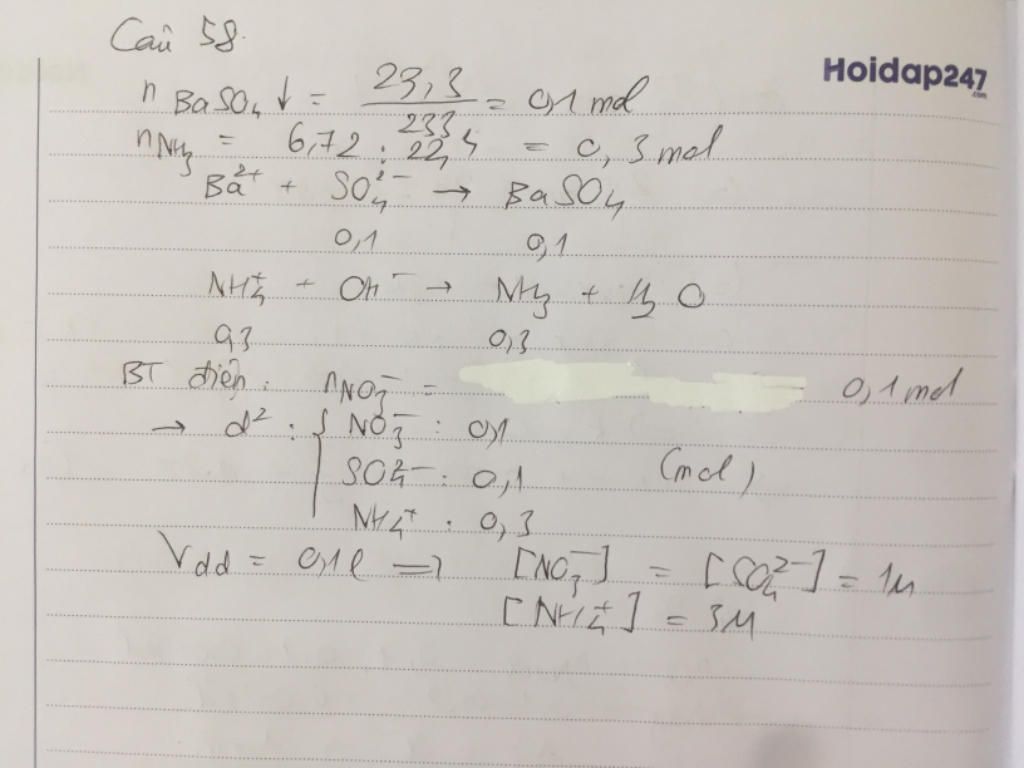 Câu 58.
Hoidap247
.com
n BaSO4 ↓ = 23,3 / 233 = 0,1 mol
nNH3 = 6,72 : 22,4 = 0,3 mol
Ba2+ + SO42- → BaSO4
0,1 0,1
NH4+ + OH- → NH3 + H2O
0,3 0,3
BT điện : nNO3- = 0,1 mol
→ d2 : { NO3- : 0,1
SO42- : 0,1 (mol)
NH4+ : 0,3
Vdd = 0,1l => [NO3-] = [SO42-] = 1M
[NH4+] = 3M